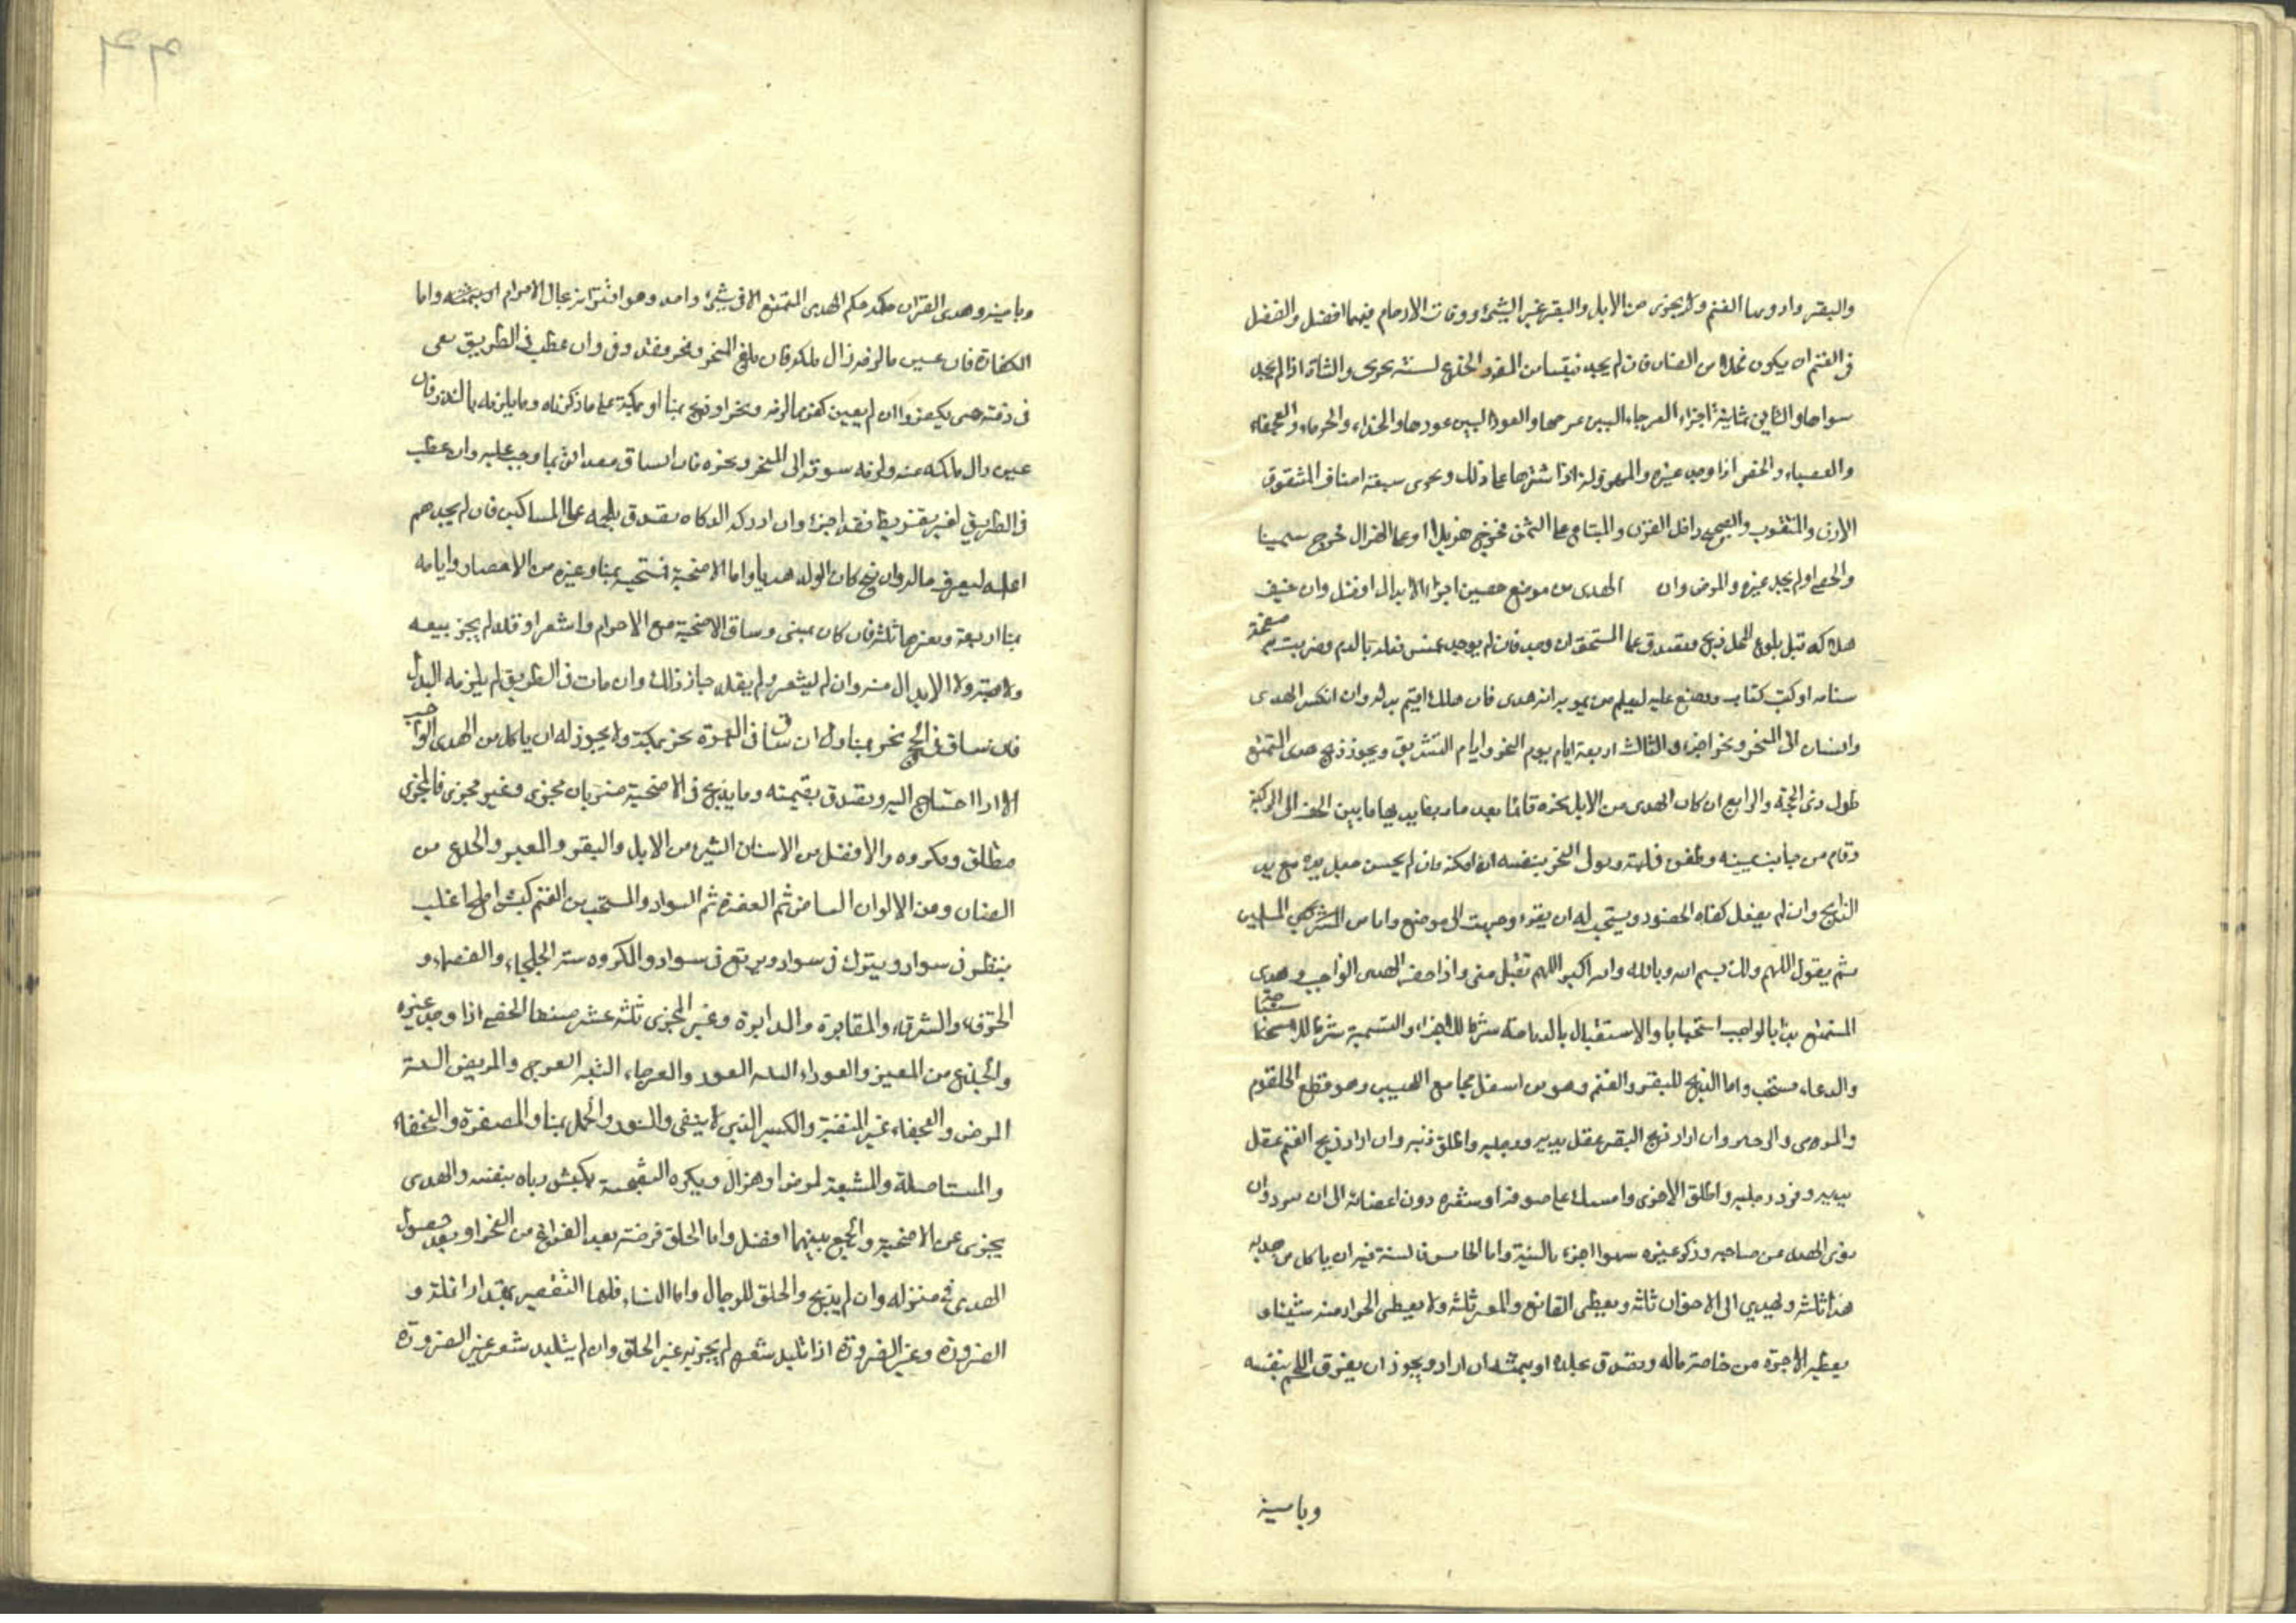 والبقر وادونها الغنم ولا يجزى من الابل والبقر غير الثنى وذوات الارحام فيهما افضل والفضل
فى الغنم ان يكون فحلا من الضان فان لم يجد فتيسا من المعز والجذع لسنة يجزى والشاة اذا لم يجد
سواها والثانى ثمانية اجزاء العرجاء البين عرجها والعوراء البين عورها والجذاء والخرماء والعجفاء
والعضباء والخصى اذا وجد غيره والمهزولة اذا اشتراها على ذلك ويجزى سبعة اصناف المشقوق
الاذن والمثقوب والصحيح داخل القرن والمبتاع على السمن فخرج هزيلا او على الهزال فخرج سمينا
والخصى اذا لم يجد غيره والمرضى وان الهدى من موضع حصين اجزا والابدال افضل وان خيف
هلاكه قبل بلوغ المحل ذبح وتصدق على المستحق ان وجد فان لم يوجد غمس نعله بالدم وضربت به صفحة
سنامه او كتب كتاب ووضع عليه ليعلم من يمر به انه هدى فان هلك اقيم بدله وان انكسر الهدى
وانساق الى المنحر ونحر اجزء والثالث اربعة ايام يوم النحر وايام التشريق ويجوز ذبح هدى التمتع
طول ذى الحجة والرابع ان كان الهدى من الابل نحره قائما بعد ما ربط يديها ما بين الخف الى الركبة
وقام من جانب يمينه وطعن فى لبته وتولى النحر بنفسه ان امكنه فان لم يحسن جعل يده مع يد
الذابح وان لم يفعل كفاه الحضور ويستحب له ان يقرء وجهت الى موضع وانا من المسلمين
ثم يقول اللهم منك ولك بسم الله وبالله والله اكبر اللهم تقبل منى واذا حضر الهدى الواجب وهدى
المتمتع بدا بالواجب استحبابا والاستقبال بالذبيحة شرط للاجزاء والتسمية شرط للاستحباب
والدعاء مستحب واما الذبح للبقر والغنم وهو من اسفل مجامع اللحيين وهو قطع الحلقوم
والمرى والودجين وان اراد ذبح البقر عقل يديه ورجليه واطلق ذنبه وان اراد ذبح الغنم عقل
يديه وفرد رجليه واطلق الاخرى وامسك على صوفه او شعره دون اعضائه الى ان يبرد وان
نوى الهدى عن صاحبه وذكر غيره سهوا اجزء بالنية واما الخامس فالسنة فيه ان ياكل من هديه
هذا ثلثه ويهدى الى الاخوان ثلثه ويعطى القانع والمعتر ثلثه ولا يعطى الجزار منه شيئا و
يعطيه الاجرة من خاصة ماله وتصدق بجلده او بثمنه ان اراد ويجوز ان يفرق اللحم بنفسه
وبامينه
وبامينه وهدى القران حكمه حكم الهدى المتمتع الا فى شىء واحد وهو اقترانه بحال الاحرام واما
الكفارة فان عين ما لزمه زال ملكه فان بلغ المنحر ونحر فقد وفى وان عطب فى الطريق بقى
فى ذمته حتى يكفر وان لم يعين كفر بما لزمه ونحر او ذبح بمنا او بمكة على ما ذكرناه وما يلزمه بالنذر فان
عين زال ملكه عنه ولزمه سوقه الى المنحر ونحره فان انساق فقد اتى بما وجب عليه وان عطب
فى الطريق لغير تفريط فقد اجزء وان ادرك الذكاة تصدق بلحمه على المساكين فان لم يجدهم
اعلمه ليعرف حاله وان نتج كان الولد هديا واما الاضحية فتستحب بمنا وغيره من الامصار وايامه
بمنا اربعة وبغيرها ثلثة فان كان بمنى وساق الاضحية مع الاحرام واشعر او قلد لم يجز بيعه
ولا هبته ولا الابدال منه وان لم يشعر ولم يقلد جاز ذلك وان مات فى الطريق لم يلزمه البدل
فان ساق فى الحج نحر بمنا وان ساق فى العمرة نحر بمكة ولا يجوز له ان ياكل من الهدى الواجب
الا اذا احتاج اليه وتصدق بقيمته وما يذبح فى الاضحية ضربان مجزى وغير مجزى فالمجزى
مطلق ومكروه والافضل من الاسنان الثنى من الابل والبقر والمعز والجذع من
الضان ومن الالوان البياض ثم العفرة ثم السواد والمستحب من الغنم كبش املح اغلب
ينظر فى سواد ويبرك فى سواد ويرتع فى سواد والمكروه ستة الجلحاء والقصماء و
الخرقاء والشرقاء والمقابرة والدابرة وغير المجزى ثلثة عشر صنفا الخصى اذا وجد غيره
والجذع من المعيز والعوراء البينة العور والعرجاء البينة العرج والمريض البينة
المرض والعجفاء غير المنقية والكسير الذى لا ينقى والثور والجمل بمنا والمصفرة والبخقاء
والمستاصلة والمشيعة لمرض او هزال ويكره التضحية بكبش رباه بنفسه والهدى
يجزى عن الاضحية والجمع بينهما افضل واما الحلق فرضته بعد الفراغ من النحر او بعد حصول
الهدى فى منزله وان لم يذبح والحلق للرجال واما النساء فلها التقصير بمقدار انملة و
الصرورة وغير الصرورة اذا تلبد شعره لم يجزيه غير الحلق وان لم يتلبد شعر غير الصرورة